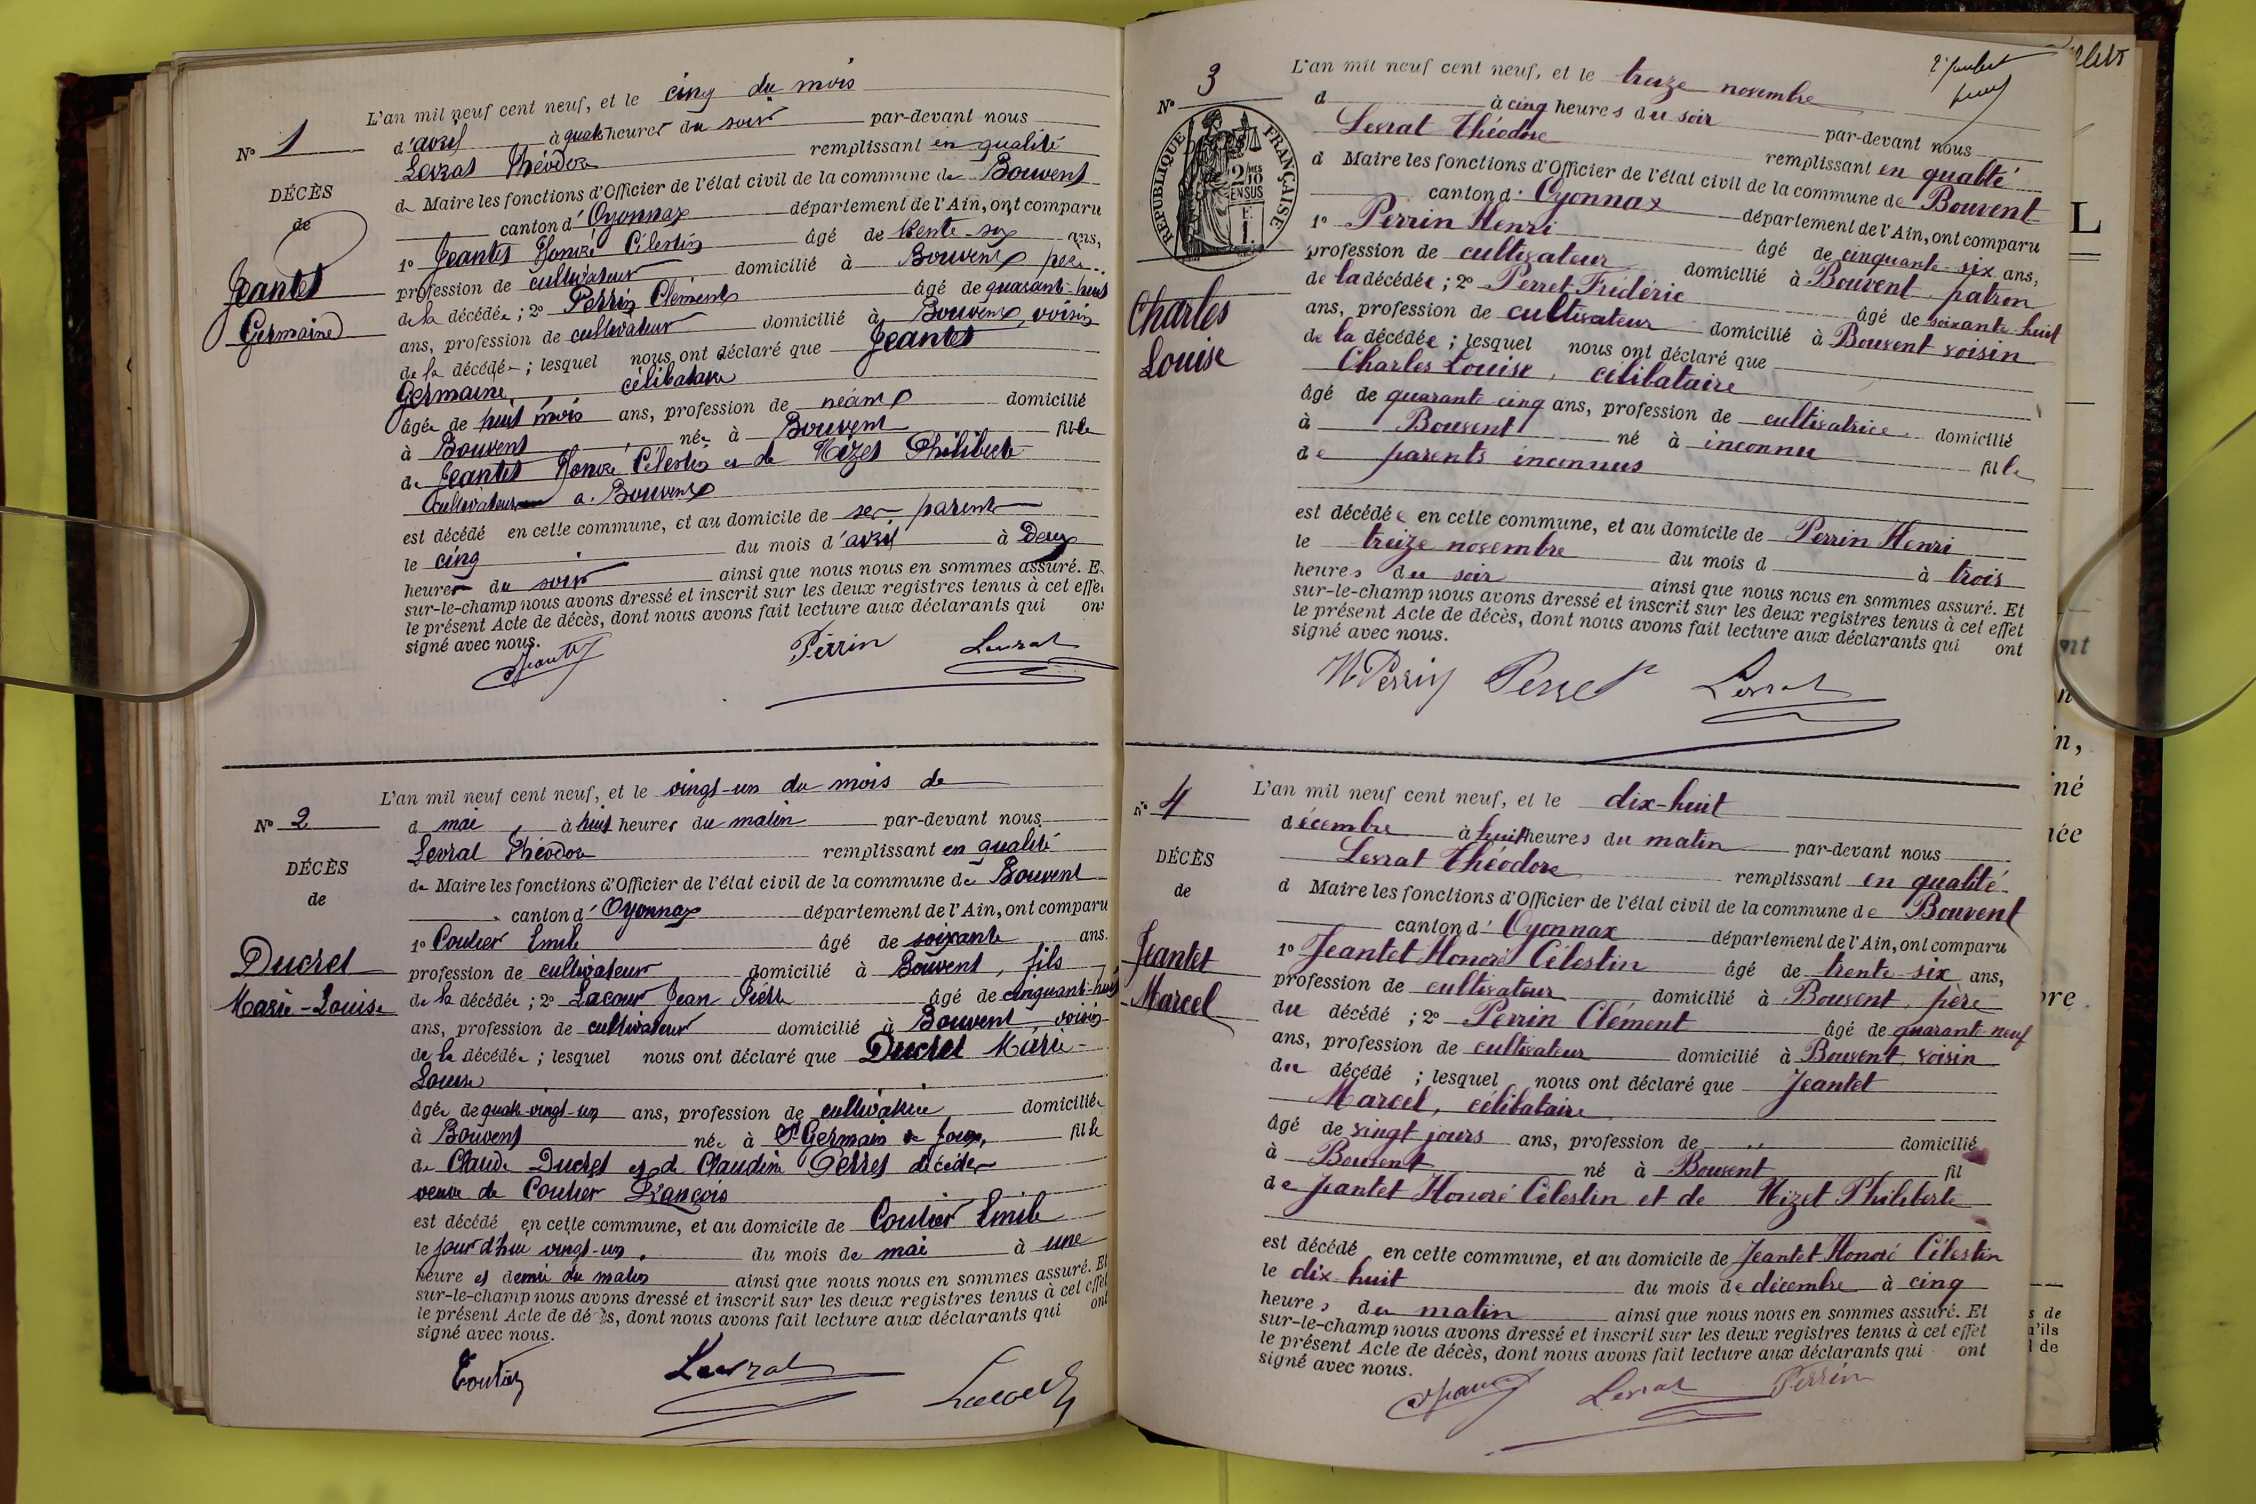 L'an mil neuf cent neuf, et le cinq du mois
d'avril à quatre heures du soir par-devant nous
Levrat Théodore remplissant en qualité
de Maire les fonctions d'Officier de l'état civil de la commune de Bouvent
canton d'Oyonnax département de l'Ain, ont comparu
1o Jeantet Honoré Célestin âgé de trente-six ans,
profession de cultivateur domicilié à Bouvent père
de la décédée ; 2o Perrin Clément âgé de quarante-huit
ans, profession de cultivateur domicilié à Bouvent, voisin
de la décédée ; lesquel nous ont déclaré que Jeantet
Germaine, célibataire
âgée de huit mois ans, profession de néant domicilié
à Bouvent née à Bouvent fille
de Jeantet Honoré Célestin et de Nizet Philiberte
cultivateurs à Bouvent
est décédé en cette commune, et au domicile de ses parents
le cinq du mois d'avril à Deux
heures du soir ainsi que nous nous en sommes assuré. E
sur-le-champ nous avons dressé et inscrit sur les deux registres tenus à cet effe
le présent Acte de décès, dont nous avons fait lecture aux déclarants qui on
signé avec nous.
Jeantet Perrin Levrat
No 1
DÉCÈS
de
Jeantet
Germaine
L'an mil neuf cent neuf, et le vingt-un du mois de
d mai à huit heures du matin par-devant nous
Levrat Théodore remplissant en qualité
de Maire les fonctions d'Officier de l'état civil de la commune de Bouvent
canton d'Oyonnax département de l'Ain, ont comparu
1o Coutier Emile âgé de soixante ans.
profession de cultivateur domicilié à Bouvent, fils
de la décédée ; 2o Lacour Jean Pierre âgé de cinquante-huit
ans, profession de cultivateur domicilié à Bouvent voisin
de la décédée ; lesquel nous ont déclaré que Ducret Marie-
Louise
âgée de quatre-vingt-un ans, profession de cultivatrice domiciliée
à Bouvent née à St Germain de Joux, fille
de Claude Ducret et de Claudine Perret décédés
veuve de Coutier François
est décédé en cette commune, et au domicile de Coutier Emile
le jourd'hui vingt-un du mois de mai à une
heure et demie du matin ainsi que nous nous en sommes assuré. Et
sur-le-champ nous avons dressé et inscrit sur les deux registres tenus à cet effet
le présent Acte de décès, dont nous avons fait lecture aux déclarants qui ont
signé avec nous.
Coutier Levrat Lacour
No 2
DÉCÈS
de
Ducret
Marie-Louise
L'an mil neuf cent neuf, et le treize novembre
d à cinq heures du soir par-devant nous
Levrat Théodore remplissant en qualité
d Maire les fonctions d'Officier de l'état civil de la commune de Bouvent
canton d'Oyonnax département de l'Ain, ont comparu
1o Perrin Henri âgé de cinquante-six ans,
profession de cultivateur domicilié à Bouvent, patron
de la décédée ; 2o Perret Frédéric âgé de soixante-huit
ans, profession de cultivateur domicilié à Bouvent voisin
de la décédée ; lesquel nous ont déclaré que
Charles Louise, célibataire
âgé de quarante cinq ans, profession de cultivatrice domicilié
à Bouvent né à inconnu fille
de parents inconnus
est décédée en cette commune, et au domicile de Perrin Henri
le treize novembre du mois d à trois
heures du soir ainsi que nous nous en sommes assuré. Et
sur-le-champ nous avons dressé et inscrit sur les deux registres tenus à cet effet
le présent Acte de décès, dont nous avons fait lecture aux déclarants qui ont
signé avec nous.
H Perrin Perret Levrat
No 3
RÉPUBLIQUE FRANÇAISE
2/10 EN SUS
Charles
Louise
L'an mil neuf cent neuf, et le dix-huit
décembre à huit heures du matin par-devant nous
Levrat Théodore remplissant en qualité
d Maire les fonctions d'Officier de l'état civil de la commune de Bouvent
canton d'Oyonnax département de l'Ain, ont comparu
1o Jeantet Honoré Célestin âgé de trente-six ans,
profession de cultivateur domicilié à Bouvent, père
du décédé ; 2o Perrin Clément âgé de quarante-neuf
ans, profession de cultivateur domicilié à Bouvent, voisin
du décédé ; lesquel nous ont déclaré que Jeantet
Marcel, célibataire
âgé de vingt jours ans, profession de " domicilié
à Bouvent né à Bouvent fil
de Jeantet Honoré Célestin et de Nizet Philiberte
est décédé en cette commune, et au domicile de Jeantet Honoré Célestin
le dix huit du mois de décembre à cinq
heures du matin ainsi que nous nous en sommes assuré. Et
sur-le-champ nous avons dressé et inscrit sur les deux registres tenus à cet effet
le présent Acte de décès, dont nous avons fait lecture aux déclarants qui ont
signé avec nous.
Jeantet Levrat Perrin
No 4
DÉCÈS
de
Jeantet
Marcel